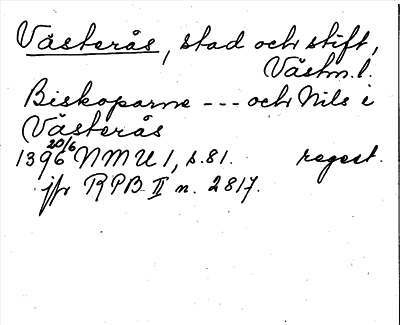 Västerås, stad och stift,
Västm. l.
Biskoparne --- och Nils i
Västerås
1396 20/6 NMU 1, s. 81. regest.
jfr RPB II n. 2817.